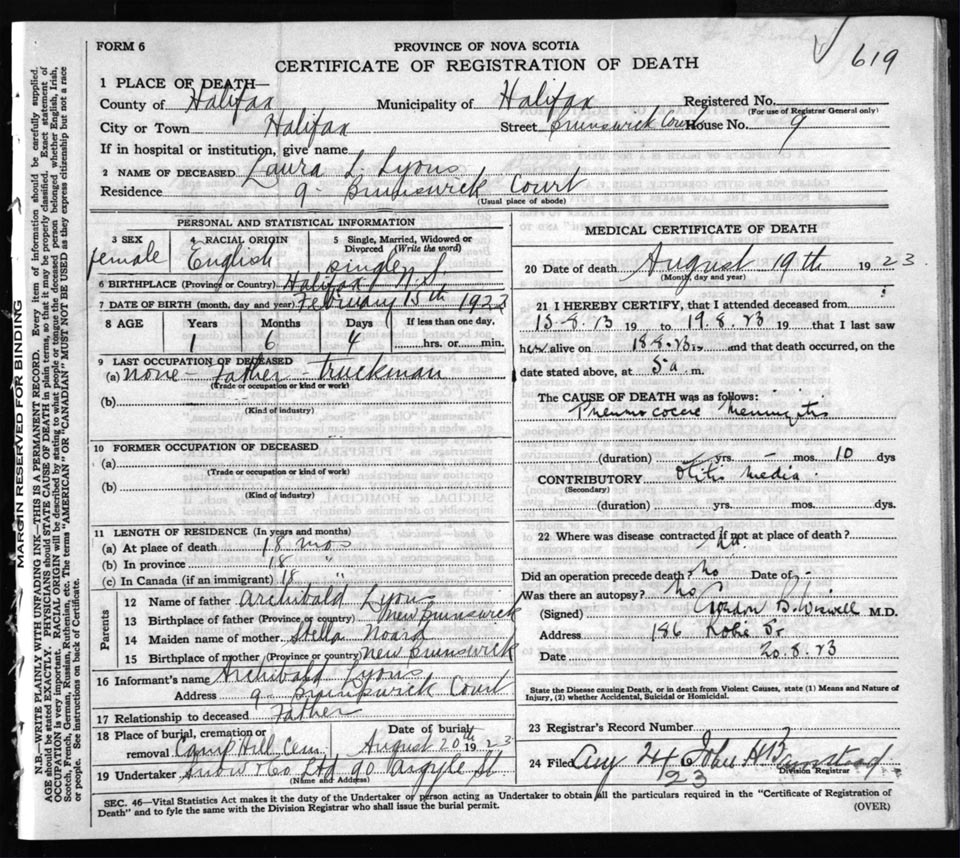 619
FORM 6
PROVINCE OF NOVA SCOTIA
CERTIFICATE OF REGISTRATION OF DEATH
1 PLACE OF DEATH—
County of Halifax Municipality of Halifax Registered No.
(For use of Registrar General only)
City or Town Halifax Street Brunswick Court House No. 9
If in hospital or institution, give name
2 NAME OF DECEASED Laura L Lyons
Residence 9 - Brunswick Court
(Usual place of abode)
PERSONAL AND STATISTICAL INFORMATION
3 SEX 4 RACIAL ORIGIN 5 Single, Married, Widowed or Divorced (Write the word)
female English single
6 BIRTHPLACE (Province or Country) Halifax N.S
7 DATE OF BIRTH (month, day and year) February 15th 1922
8 AGE Years Months Days If less than one day,
1 6 4 hrs. or min.
9 LAST OCCUPATION OF DECEASED
(a) none - Father - truckman
(Trade or occupation or kind or work)
(b)
(Kind of industry)
10 FORMER OCCUPATION OF DECEASED
(a)
(Trade or occupation or kind of work)
(b)
(Kind of industry)
11 LENGTH OF RESIDENCE (In years and months)
(a) At place of death 18 mos
(b) In province 18 "
(c) In Canada (if an immigrant) 18 "
Parents
12 Name of father Archibald Lyons
13 Birthplace of father (Province or country) New Brunswick
14 Maiden name of mother Stella
15 Birthplace of mother (Province or country) New Brunswick
16 Informant's name Archibald Lyons
Address 9 - Brunswick Court
17 Relationship to deceased Father
18 Place of burial, cremation or removal Camp Hill Cem Date of burial August 20th 1923
19 Undertaker Snow & Co Ltd 90 Argyle St
(Name and Address)
MEDICAL CERTIFICATE OF DEATH
20 Date of death August 19th 1923.
(Month, day and year)
21 I HEREBY CERTIFY, that I attended deceased from
13-8-23 19 to 19.8.23 19 that I last saw
her alive on 18-8-23 19 and that death occurred, on the
date stated above, at 5 a m.
The CAUSE OF DEATH was as follows:
Pneumococcic Meningitis
(duration) yrs. mos. 10 dys
CONTRIBUTORY Otitis Media
(Secondary)
(duration) yrs. mos. dys.
22 Where was disease contracted if not at place of death?
Did an operation precede death? No Date of -
Was there an autopsy? No
(Signed) Gordon B. Wiswell M.D.
Address 186 Robie St.
Date 20.8.23
State the Disease causing Death, or in death from Violent Causes, state (1) Means and Nature of Injury, (2) whether Accidental, Suicidal or Homicidal.
23 Registrar's Record Number
24 Filed Aug 24 23 John
Division Registrar
SEC. 46—Vital Statistics Act makes it the duty of the Undertaker or person acting as Undertaker to obtain all the particulars required in the "Certificate of Registration of
Death" and to fyle the same with the Division Registrar who shall issue the burial permit.
(OVER)
MARGIN RESERVED FOR BINDING
N.B.—WRITE PLAINLY WITH UNFADING INK—THIS IS A PERMANENT RECORD. Every item of information should be carefully supplied.
AGE should be stated EXACTLY. PHYSICIANS should STATE CAUSE OF DEATH in plain terms, so that it may be properly classified. Exact statement of
OCCUPATION is very important. RACIAL ORIGIN will be described by stating to what people or tongue the deceased person belonged whether English, Irish,
Scotch, French, German, Russian, Ruthenian, etc. The terms "AMERICAN" OR "CANADIAN" MUST NOT BE USED as they express citizenship but not a race
or people. See instructions on back of Certificate.